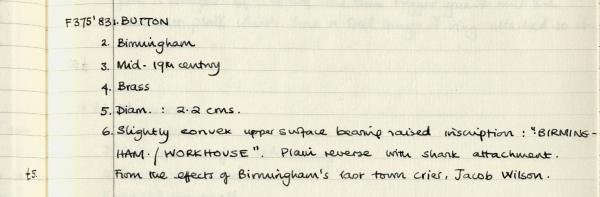 F375'83 1. BUTTON
2. Birmingham
3. Mid-19th century
4. Brass
5. Diam. : 2.2 cms.
6. Slightly convex upper surface bearing raised inscription : "BIRMING-
HAM. / WORKHOUSE". Plain reverse with shank attachment.
£5. From the effects of Birmingham's last town crier, Jacob Wilson.